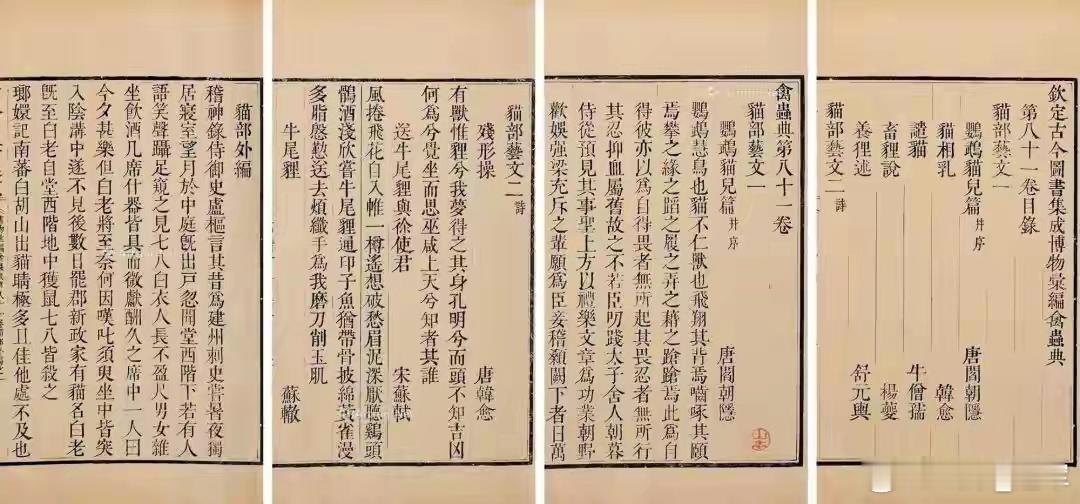 欽定古今圖書集成博物彙編禽蟲典
第八十一卷目錄
貓部藝文一
鸚鵡貓兒篇 并序 唐閻朝隱
貓相乳 韓愈
譴貓 牛僧孺
畜貍說 楊夔
養狸述 舒元輿
貓部藝文二 詩
禽蟲典第八十一卷
貓部藝文一
鸚鵡貓兒篇 并序 唐閻朝隱
鸚鵡慧鳥也貓不仁獸也飛翔其背焉嚙啄其頤
焉攀之緣之蹈之履之弄之藉之蹌蹌焉此為自
得彼亦以為自得畏者無所起其畏忍者無所行
其忍抑血屬舊故之不若臣叨踐太子舍人朝暮
侍從預見其事聖上方以禮樂文章為功業朝野
歡娛強梁充斥之輩願為臣妾稽顙闕下者日萬
貓部藝文二 詩
殘形操 唐韓愈
有獸惟貍兮我夢得之其身孔明兮而頭不知吉凶
何為兮覺坐而思巫咸上天兮知者其誰
送牛尾貍與徐使君 宋蘇軾
風捲飛花自入帷一樽遙想破愁眉泥深厭聽雞頭
鶻酒淺欣嘗牛尾貍通印子魚猶帶骨披綿黃雀漫
多脂殷勤送去煩纖手為我磨刀削玉肌
牛尾貍 蘇轍
貓部外編
稽神錄侍御史盧樞言其昔為建州刺史嘗暑夜獨
居寢室望月於中庭既出戶忽聞堂西階下若有人
語笑聲躡足窺之見七八白衣人長不盈尺男女雜
坐飲酒几席什器皆具而微獻酬久之席中一人曰
今夕甚樂但白老將至奈何因嘆叱須臾坐中皆突
入陰溝中遂不見後數日罷郡新政家有貓名白老
既至白老自堂西階地中獲鼠七八皆殺之
瑯嬛記南蕃白胡山出貓睛極多且佳他處不及也